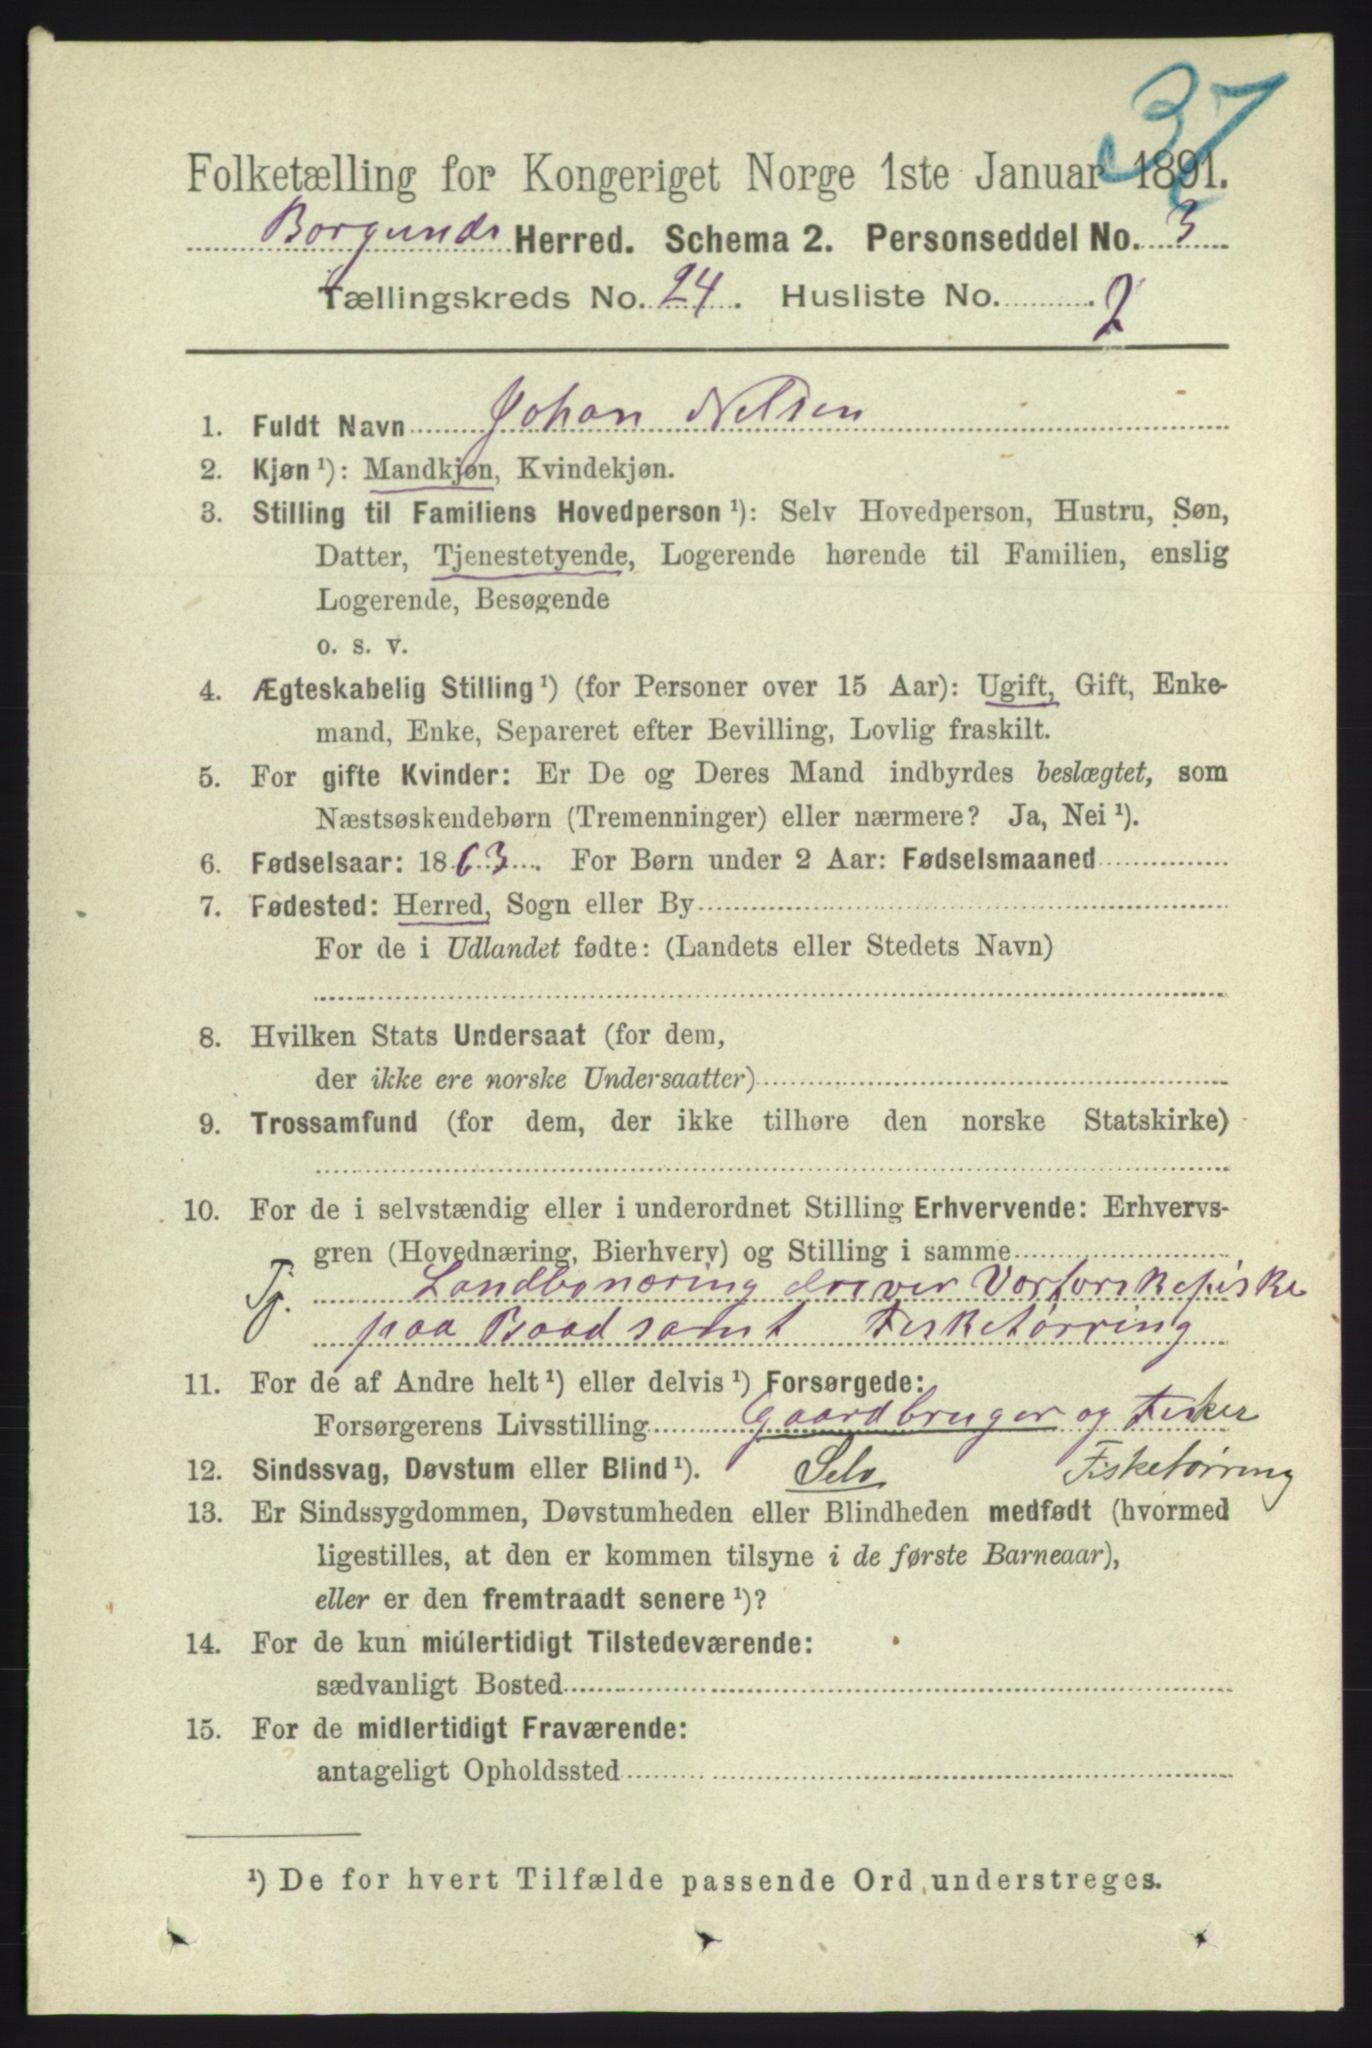 37
Folketælling for Kongeriget Norge 1ste Januar 1891.
Borgunds Herred. Schema 2. Personseddel No. 3
Tællingskreds No. 24. Husliste No. 2
1. Fuldt Navn Johan Nelsen
2. Kjøn ¹): Mandkjøn, Kvindekjøn.
3. Stilling til Familiens Hovedperson ¹): Selv Hovedperson, Hustru, Søn,
Datter, Tjenestetyende, Logerende hørende til Familien, enslig
Logerende, Besøgende
o. s. v.
4. Ægteskabelig Stilling ¹) (for Personer over 15 Aar): Ugift, Gift, Enke-
mand, Enke, Separeret efter Bevilling, Lovlig fraskilt.
5. For gifte Kvinder: Er De og Deres Mand indbyrdes beslægtet, som
Næstsøskendebørn (Tremenninger) eller nærmere? Ja, Nei ¹).
6. Fødselsaar: 1863. For Børn under 2 Aar: Fødselsmaaned
7. Fødested: Herred, Sogn eller By
For de i Udlandet fødte: (Landets eller Stedets Navn)
8. Hvilken Stats Undersaat (for dem,
der ikke ere norske Undersaatter)
9. Trossamfund (for dem, der ikke tilhøre den norske Statskirke)
10. For de i selvstændig eller i underordnet Stilling Erhvervende: Erhvervs-
gren (Hovednæring, Bierhverv) og Stilling i samme
Tj. Landbonæring drever Vartorskefiske
paa Baad samt Fisketørring
11. For de af Andre helt ¹) eller delvis ¹) Forsørgede:
Forsørgerens Livsstilling Gaardbruger og Fisker
12. Sindssvag, Døvstum eller Blind ¹). Selv Fisketørring
13. Er Sindssygdommen, Døvstumheden eller Blindheden medfødt (hvormed
ligestilles, at den er kommen tilsyne i de første Barneaar),
eller er den fremtraadt senere ¹)?
14. For de kun midlertidigt Tilstedeværende:
sædvanligt Bosted
15. For de midlertidigt Fraværende:
antageligt Opholdssted
¹) De for hvert Tilfælde passende Ord understreges.